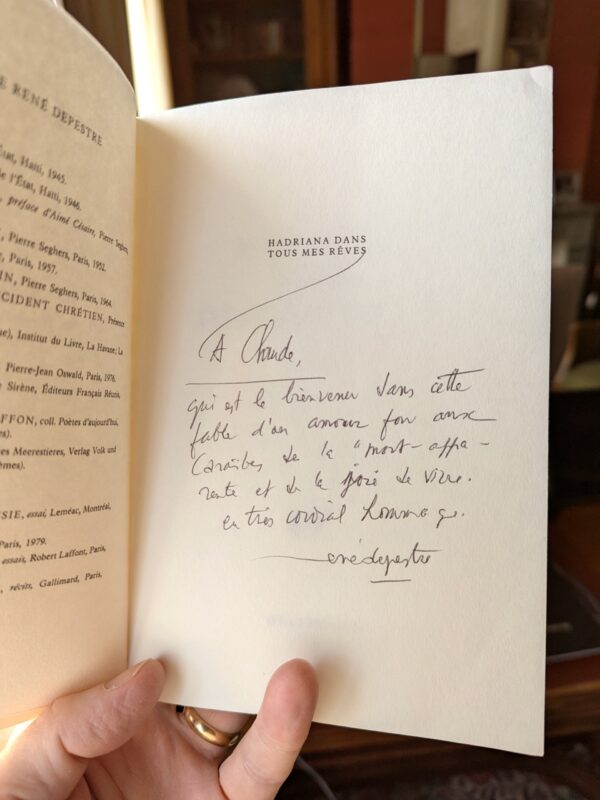 E RENÉ DEPESTRE
État, Haïti, 1945.
de l'État, Haïti, 1946.
préface d'Aimé Césaire, Pierre Seghers,
Pierre Seghers, Paris, 1952.
Paris, 1957.
IN, Pierre Seghers, Paris, 1964.
CIDENT CHRÉTIEN, Présence
Institut du Livre, La Havane; La
Pierre-Jean Oswald, Paris, 1976.
Sirène, Éditeurs Français Réunis,
FFON, coll. Poètes d'aujourd'hui,
es Meerestieres, Verlag Volk und
èmes).
SIE, essai, Leméac, Montréal,
Paris, 1979.
essais, Robert Laffont, Paris,
récits, Gallimard, Paris,
HADRIANA DANS
TOUS MES RÊVES
A Claude,
qui est le bienvenu dans cette
fable d'un amour fou aux
Caraïbes de la "mort-appa-
rente et de la joie de vivre.
en très cordial hommage.
ené depestre